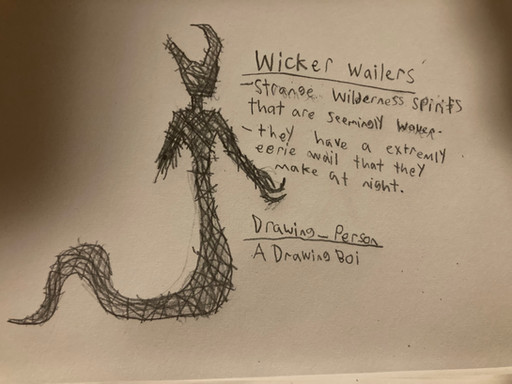 Wicker Wailers
-Strange Wilderness Spirits
that are seemingly woven.
-they have a extremly
eerie wail that they
make at night.
Drawing_Person
A Drawing Boi